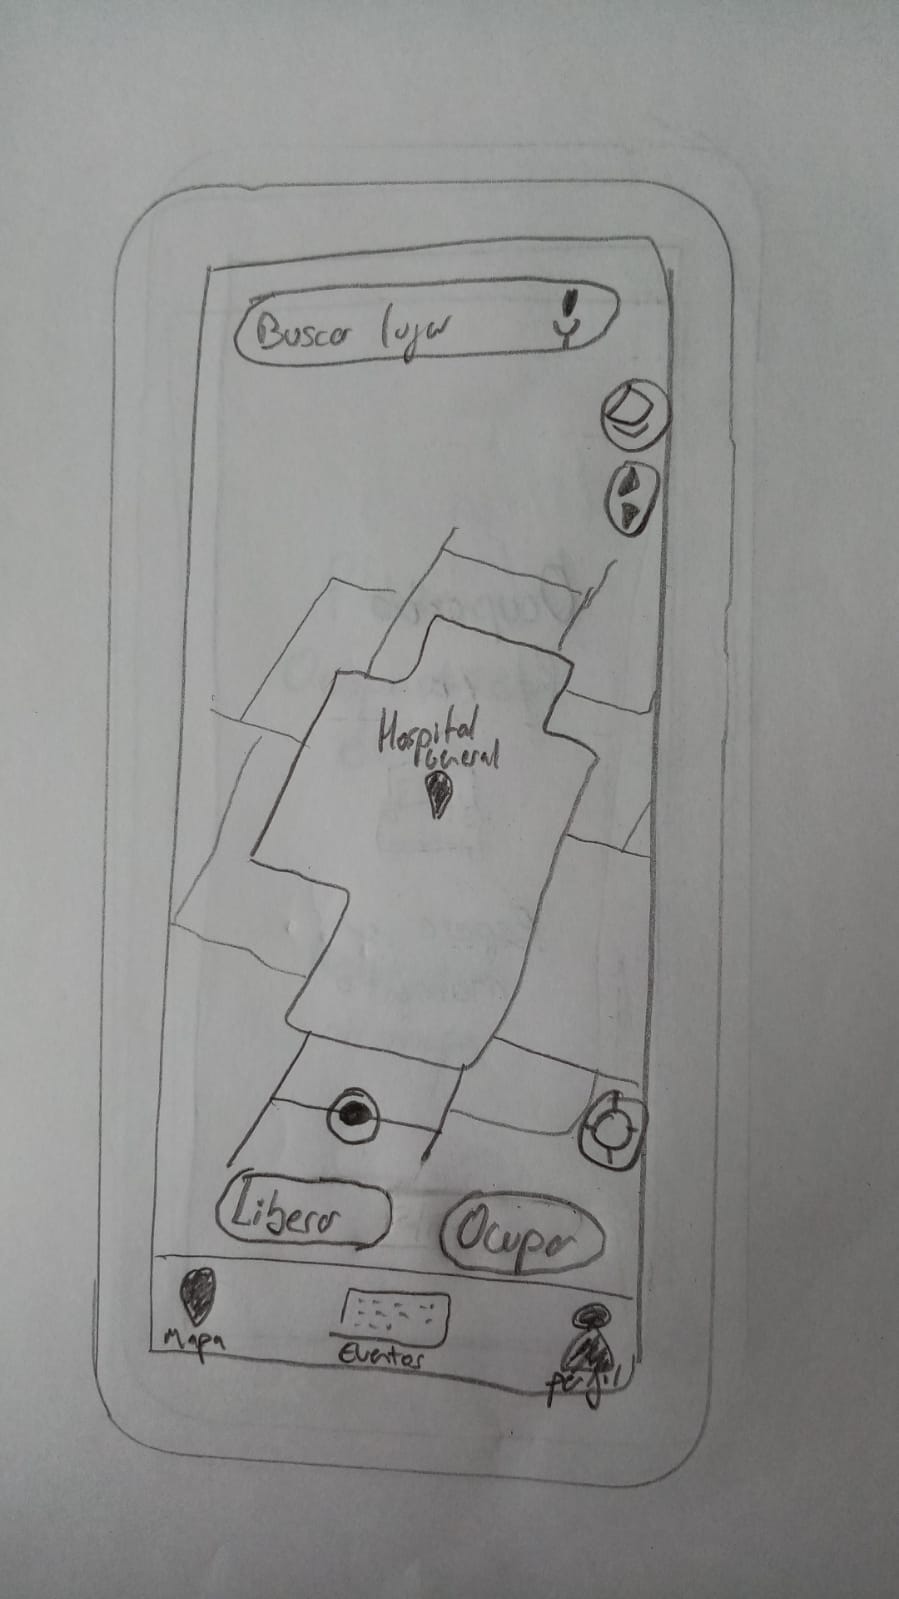 Buscar lugar
Hospital
General
Liberar
Ocupar
Mapa
Eventos
perfil